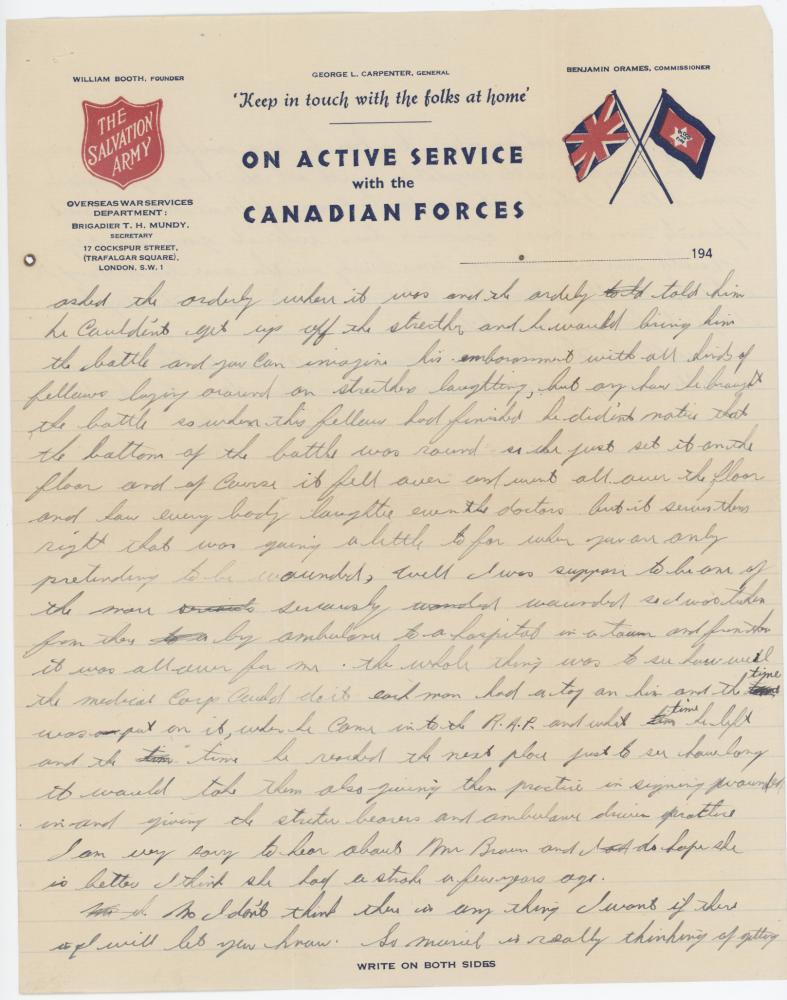 WILLIAM BOOTH, FOUNDER
GEORGE L. CARPENTER, GENERAL
BENJAMIN ORAMES, COMMISSIONER
'Keep in touch with the folks at home'
THE
SALVATION
ARMY
ON ACTIVE SERVICE
with the
CANADIAN FORCES
OVERSEAS WAR SERVICES
DEPARTMENT:
BRIGADIER T. H. MUNDY,
SECRETARY
17 COCKSPUR STREET,
(TRAFALGAR SQUARE),
LONDON, S.W. 1
194
asked the orderly where it was and the ordely told him
he Couldn't get up off the strecther and he would bring him
the bottle and you Can imagine his emborosment with all kinds of
fellows laying around on strecthers laughting, but any how he brought
the bottle so when this fellow had finished he didn't notice that
the bottom of the bottle was round so he just set it on the
floor and of Course it fell over and went all over the floor
and how every body laughtie even the doctors but it serves them
right that was going a little to far when you are only
pretending to be wounded, well I was suppose to be one of
the more seriously wounded so I was taken
from there by ambulance to a hospital in a town and from there
it was all over for me. the whole thing was to see how well
the medical Corp Could do it each man had a tag on him and the time
was put on it, when he Came in to the R.A.P. and what time he left
and the time he reached the next place just to see how long
it would take them also giving them practice in signing wounded
in and giving the strecter bearers and ambulance drivers practice
I am very sorry to hear about Mrs Brown and do hope she
is better I think she had a stroke a few years ago.
No I don't think there is any thing I want if there
is I will let you know. So Muriel is really thinking of getting
WRITE ON BOTH SIDES